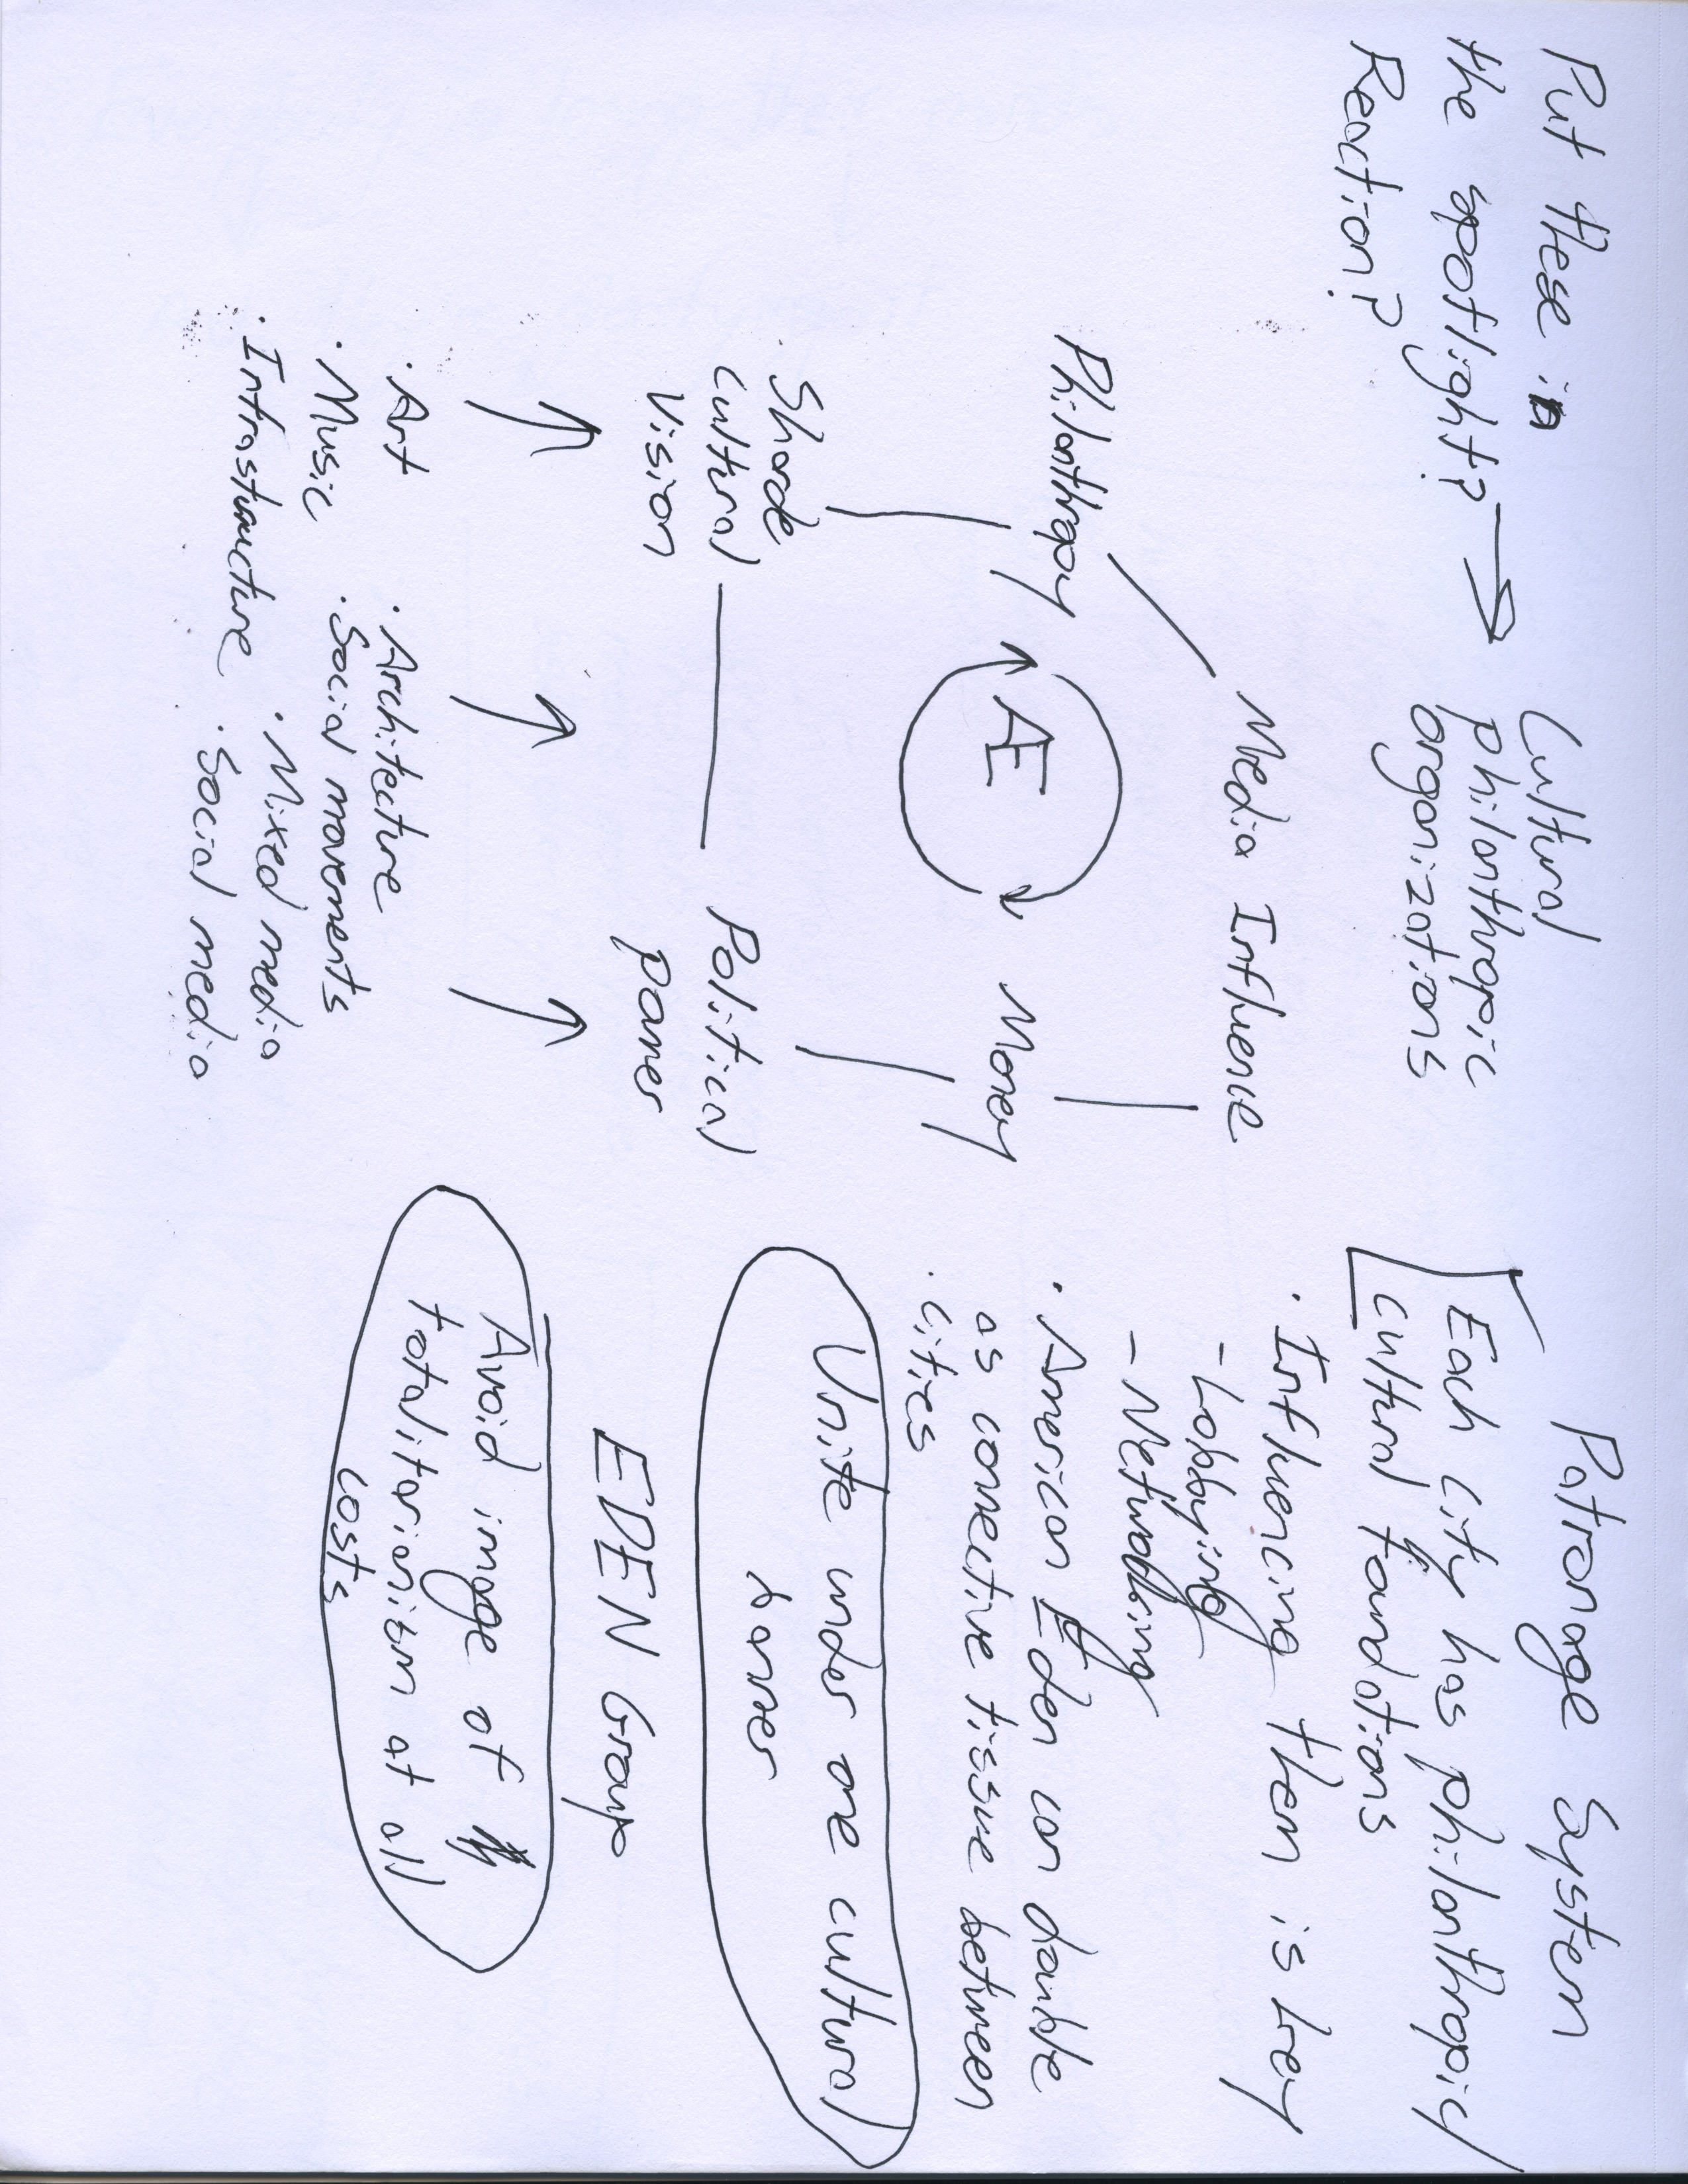 Put these in
the spotlight? →
Reaction?
Cultural
philanthropic
organizations
Media Influence
Philanthropy
Money
Æ
Sharde
Cultural
Vision
Political
power
· Art
· Music
· Infrastructure
· Architecture
· Social movements
· Mixed media
· Social media
Patronage System
Each city has philanthropic/
cultural foundations
· Influencing them is key
- Lobbying
- Networking
· American Eden can double
as connective tissue between
· cities
Unite under one cultural
banner
EDEN Group
Avoid image of
totalitarianism at all
costs